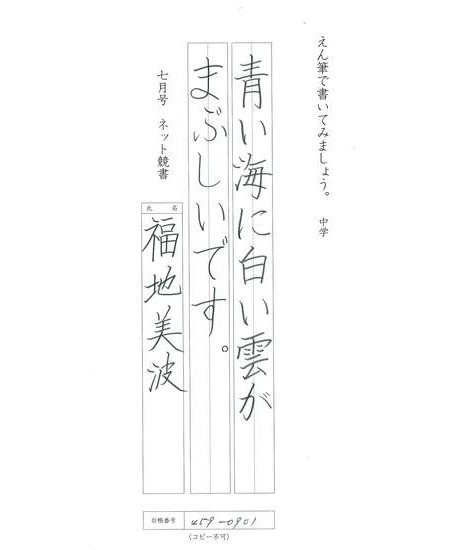 えん筆で書いてみましょう。 中学
青い海に白い雲が
まぶしいです。
七月号 ネット競書
氏名
福地美波
台帳番号 459-0901
(コピー不可)